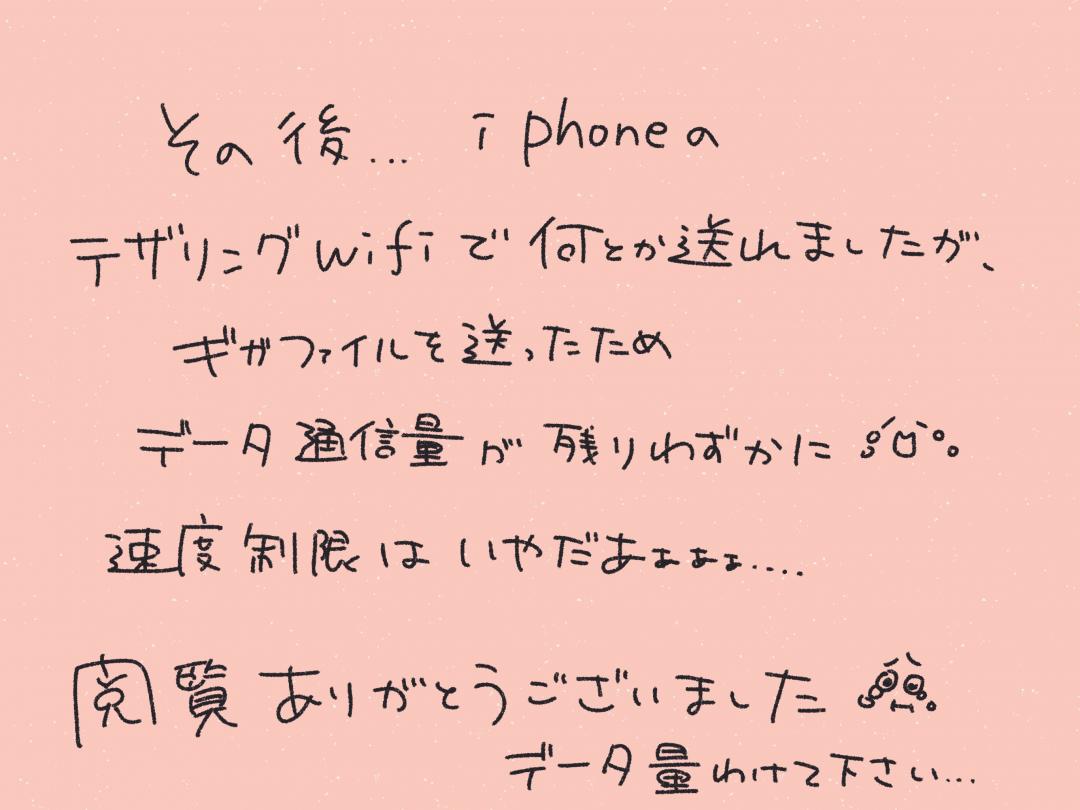 その後... iphoneの
テザリングwifiで何とか送れましたが、
ギガファイルを送ったため
データ通信量が残りわずかに
速度制限はいやだあぁぁぁ....
閲覧ありがとうございました
データ量わけて下さい...